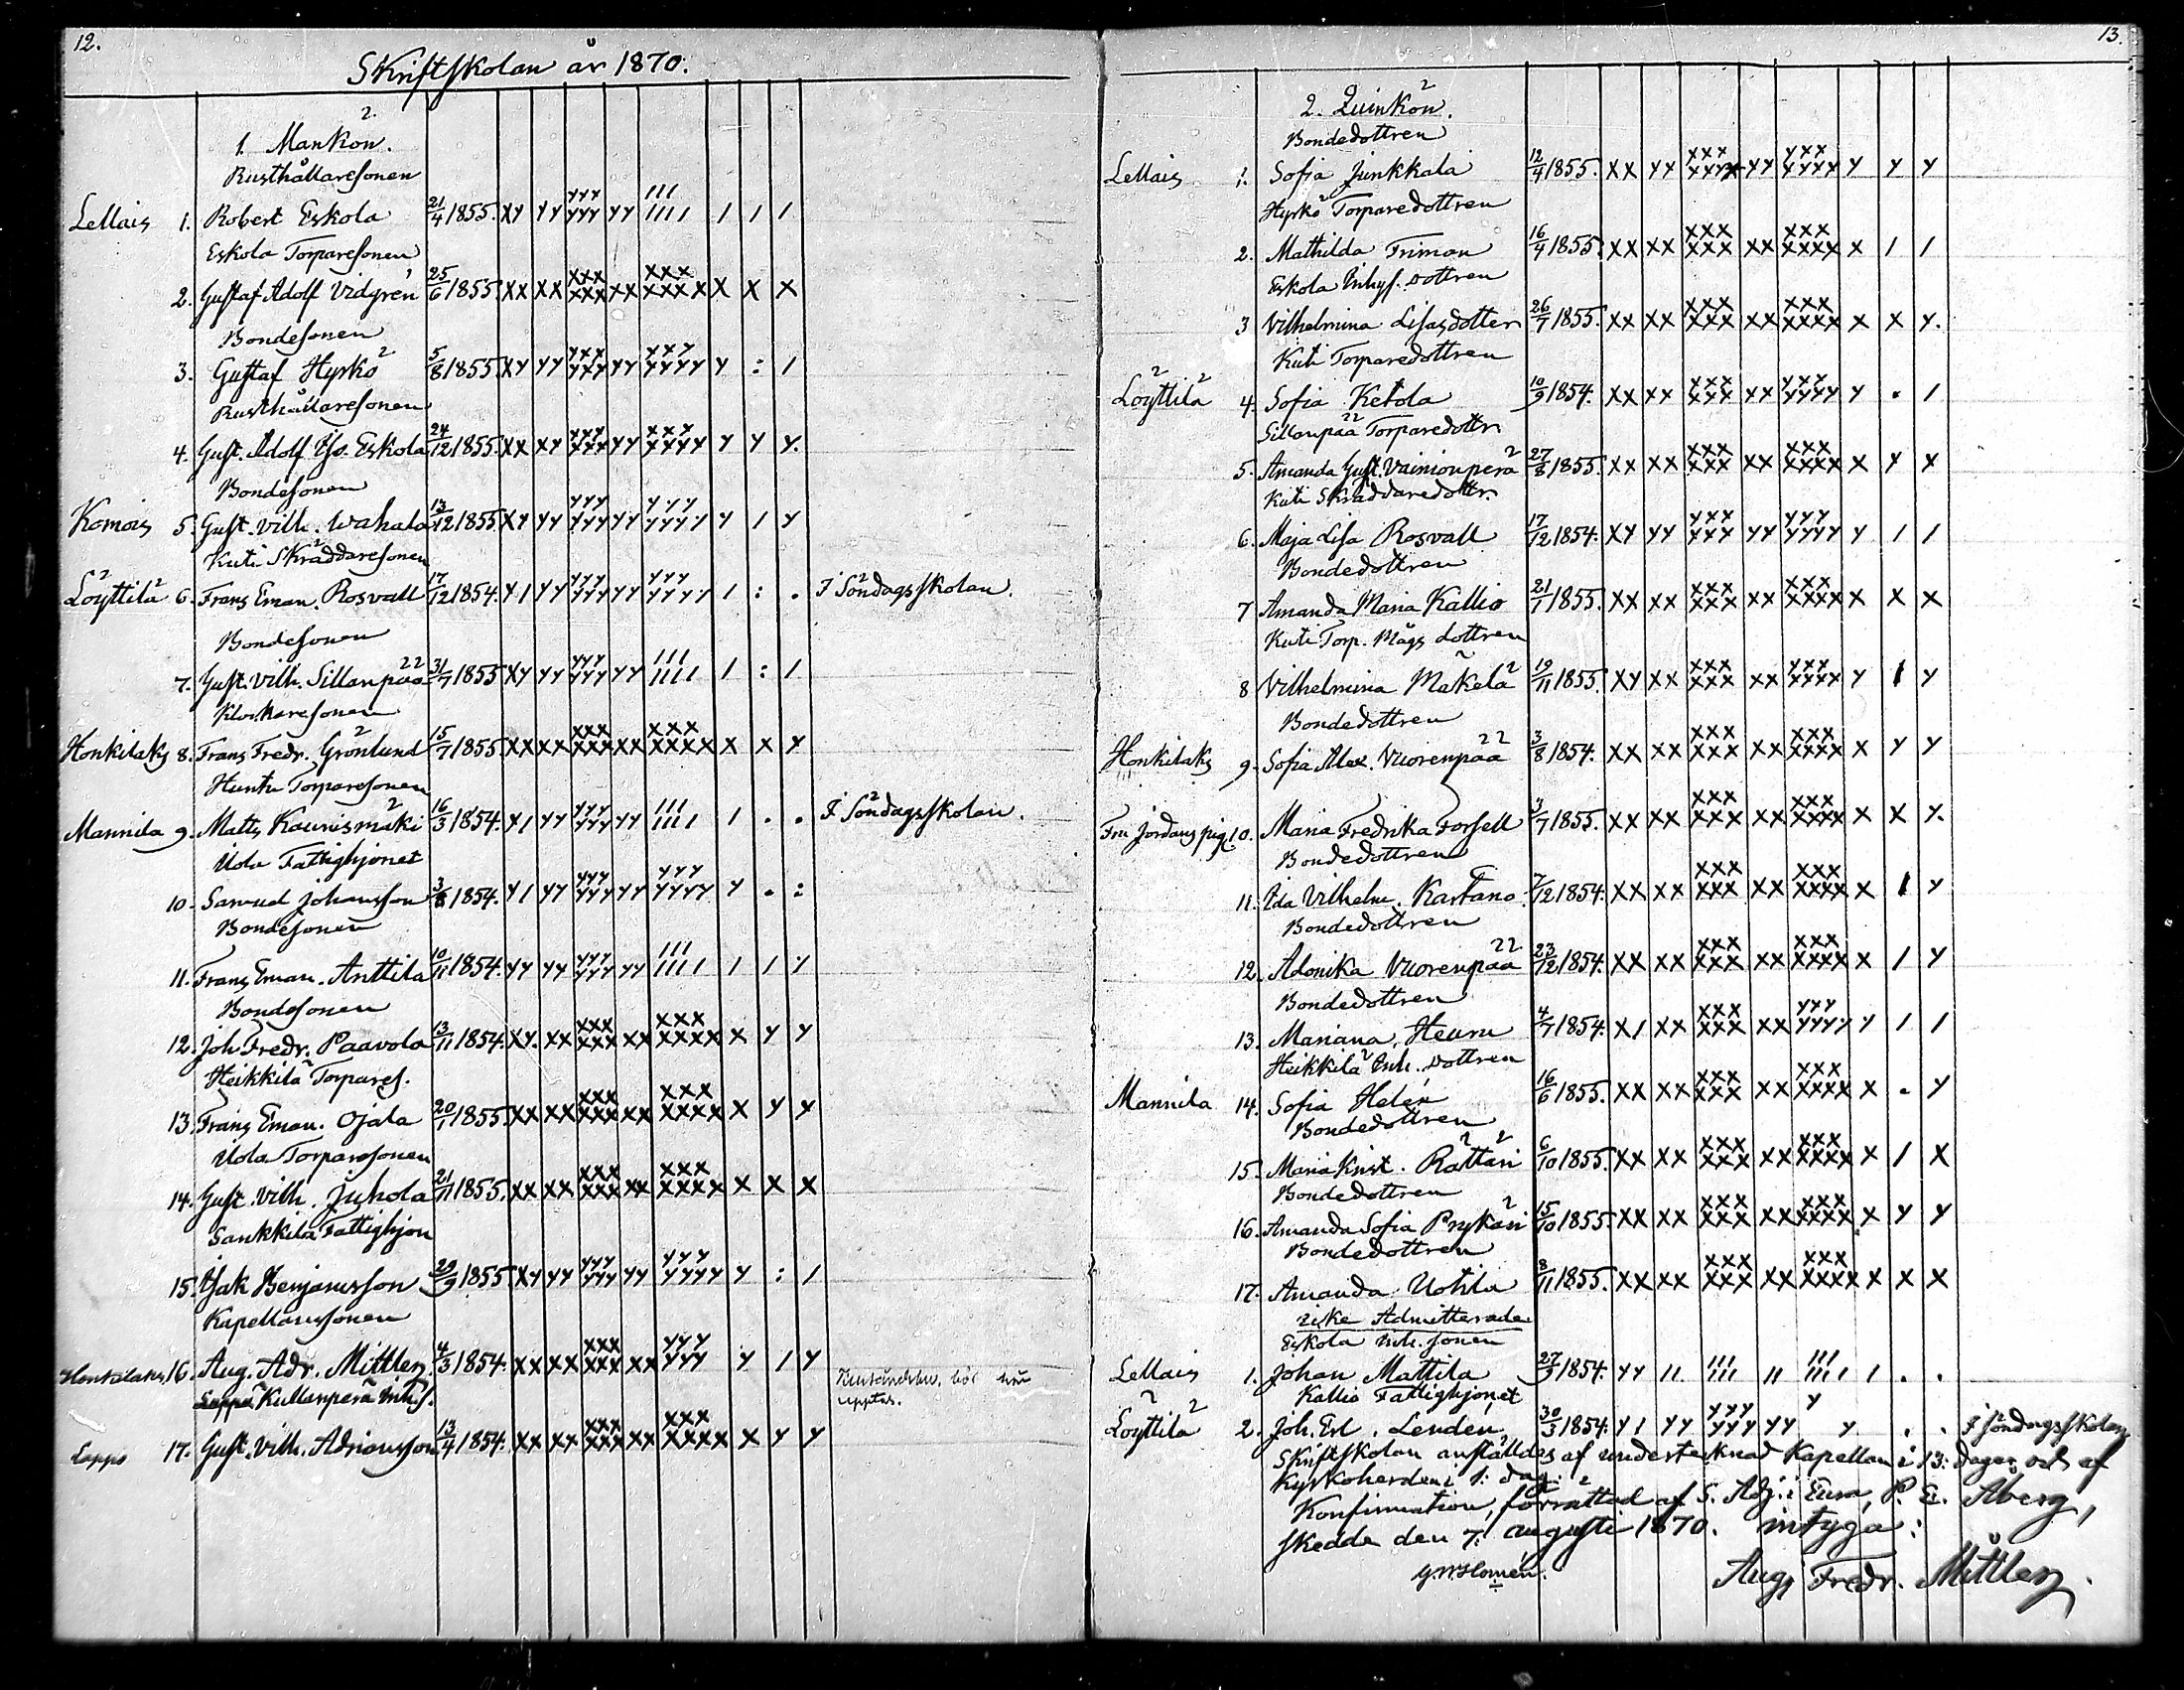 12.
Skriftskolan år 1870.
1. Mankön.
Rusthållaresonen
Lellais 1. Robert Eskola 21/4 1855. XY YY YYY YYY YY III IIII I I I
Eskola Torparesonen
2. Gustaf Adolf Vidgrén 25/6 1855. XX XX XXX XXX XX XXX XXXX X X X
Bondesonen
3. Gustaf Hyrkö 5/8 1855. XY YY YXX YXY YY YYY YYYY Y : I
Rusthållaresonen
4. Gust. Adolf Eskola 24/12 1855. XX XY YYY XXX YY XXY XYYY Y Y Y.
Bondesonen
Komois 5. Gust. Vilh. Wahala 13/12 1855. XY YY YYY YYY YY YYY YYYY Y I Y
Kuti Skräddaresonen
Löyttilä 6. Frans Eman. Rosvall 17/12 1854. YI YY YYY YYY YY YYY YYYY I : . I Söndagsskolan.
Bondesonen
7. Gust. Vilh. Sillanpää 31/7 1855 XY YY YYY YYY YY III IIII I : I
Klockaresonen
Honkilaks 8. Frans Fredr. Grönlund 15/7 1855 XX XX XXX XXX XX XXX XXXX X X Y
Huntu Torparesonen
Mannila 9. Matts Kaurismäki 16/3 1854. YI YY YYY YYY YY III IIII I . . I Söndagsskolan.
Uola Fattighjonet
10. Samuel Johansson 3/8 1854. YI YY YYY YYY YY YYY YYYY Y . :
Bondesonen
11. Frans Eman. Anttila 10/11 1854. YY YY YYY YYY YY III IIII I I Y
Bondesonen
12. Joh. Fredr. Paavola 13/11 1854. XY. XX XXX XXX XX XXX XXXX X Y Y
Heikkilä Torpares.
13. Frans Eman. Ojala 20/1 1855. XX XX XXX XXX XX XXX XXXX X Y Y
Uola Torparesonen
14. Gust. Vilh. Juhola 21/11 1855. XX XX XXX XXX XX XXX XXXX X X X
Sankkila Fattighjon
15. Isak Benjamsson 29/9 1855 XY YY YYY YYY YY YYY YYYY Y : I
Kapellanssonen
Honkilaks 16. Aug. Adr. Mittler 4/3 1854. XX XX XXX XXX XX YYY YYY Y I Y
Kullanperä Inh.s.
Lappo 17. Gust. Vilh. Adriansson 13/4 1854. XX XX XXX XXX XX XXX XXXX X Y Y
13.
2. Quinkön.
Bondedottren
Lellais 1. Sofia Junkkala 12/4 1855. XX YY XXX XXYX YY YXX YYYY Y Y Y
Hyrkö Torparedottren
2. Mathilda Friman 16/4 1855. XX XX XXX XXX XX XXX XXXX X I I
Eskola Inhys. dottren
3 Vilhelmina Lisasdotter 26/7 1855. XX XX XXX XXX XX XXX XXXX X X Y.
Kuti Torparedottren
Löyttilä 4. Sofia Ketola 10/9 1854. XX XX XXX XXX XX YXY YYYY Y . I
Sillanpää Torparedottr.
5. Amanda Gust. Vainionperä 27/8 1855. XX XX XXX XXX XX XXX XXXX X Y X
Kuti Skräddaredottr.
6. Maja Lisa Rosvall 17/12 1854. XY YY YYY XXX YY YYY YYYY Y I I
Bondedottren
7 Amanda Maria Kallio 21/1 1855. XX XX XXX XXX XX XXX XXXX X X X
Kuti Torp. Mågs dottren
8 Vilhelmina Mäkelä 19/11 1855. XY XX XXX XXX XX YXY YYYY Y I Y
Bondedottren
Honkilaks 9. Sofia Alex. Vuorenpää 3/8 1854. XX XX XXX XXX XX XXX XXXX X Y Y
Fru Jordans pig. 10. Maria Fredrika Forsell 3/7 1855. XX XX XXX XXX XX XXX XXXX X X Y.
Bondedottren
11. Ida Vilhelm. Kartano 7/12 1854. XX XX XXX XXX XX XXX XXXX X I Y
Bondedottren
12. Adonika Vuorenpää 23/12 1854. XX XX XXX XXX XX XXX XXXX X I Y
Bondedottren
13. Mariana Heuru 4/7 1854. XI XX XXX XXX XX YYY YYYY Y I I
Heikkilä Inh. dottren
Mannila 14. Sofia Helén 16/6 1855. XX XX XXX XXX XX XXX XXXX X . Y
Bondedottren
15. Maria Krist. Rättäri 6/10 1855. XX XX XXX XXX XX XXX XXXX X I X
Bondedottren
16. Amanda Sofia Prykäri 15/10 1855. XX XX XXX XXX XX XXX XXXX X Y Y
Bondedottren
17. Amanda Uotila 8/11 1855. XX XX XXX XXX XX XXX XXXX X X X
Icke Admitterade
Eskola Inh. sonen
Lellais 1. Johan Mattila 27/3 1854. YY II III III II III IIII I . .
Kallio Fattighjonet
Löyttilä 2. Joh. Erl. Lendén 30/3 1854. YI YY YYY YYYY YY Y Y . . I söndagsskolan
Skriftskolan anställdes af undertecknad Kapellan i 13. dagar och af
Kyrkoherden i 1. dag.
Konfirmation, förrättad af S. Adj. i Eura, P. E. Åberg,
skedde den 7. augusti 1870. intyga:
G. W. Homén. Aug. Fredr. Mittler.